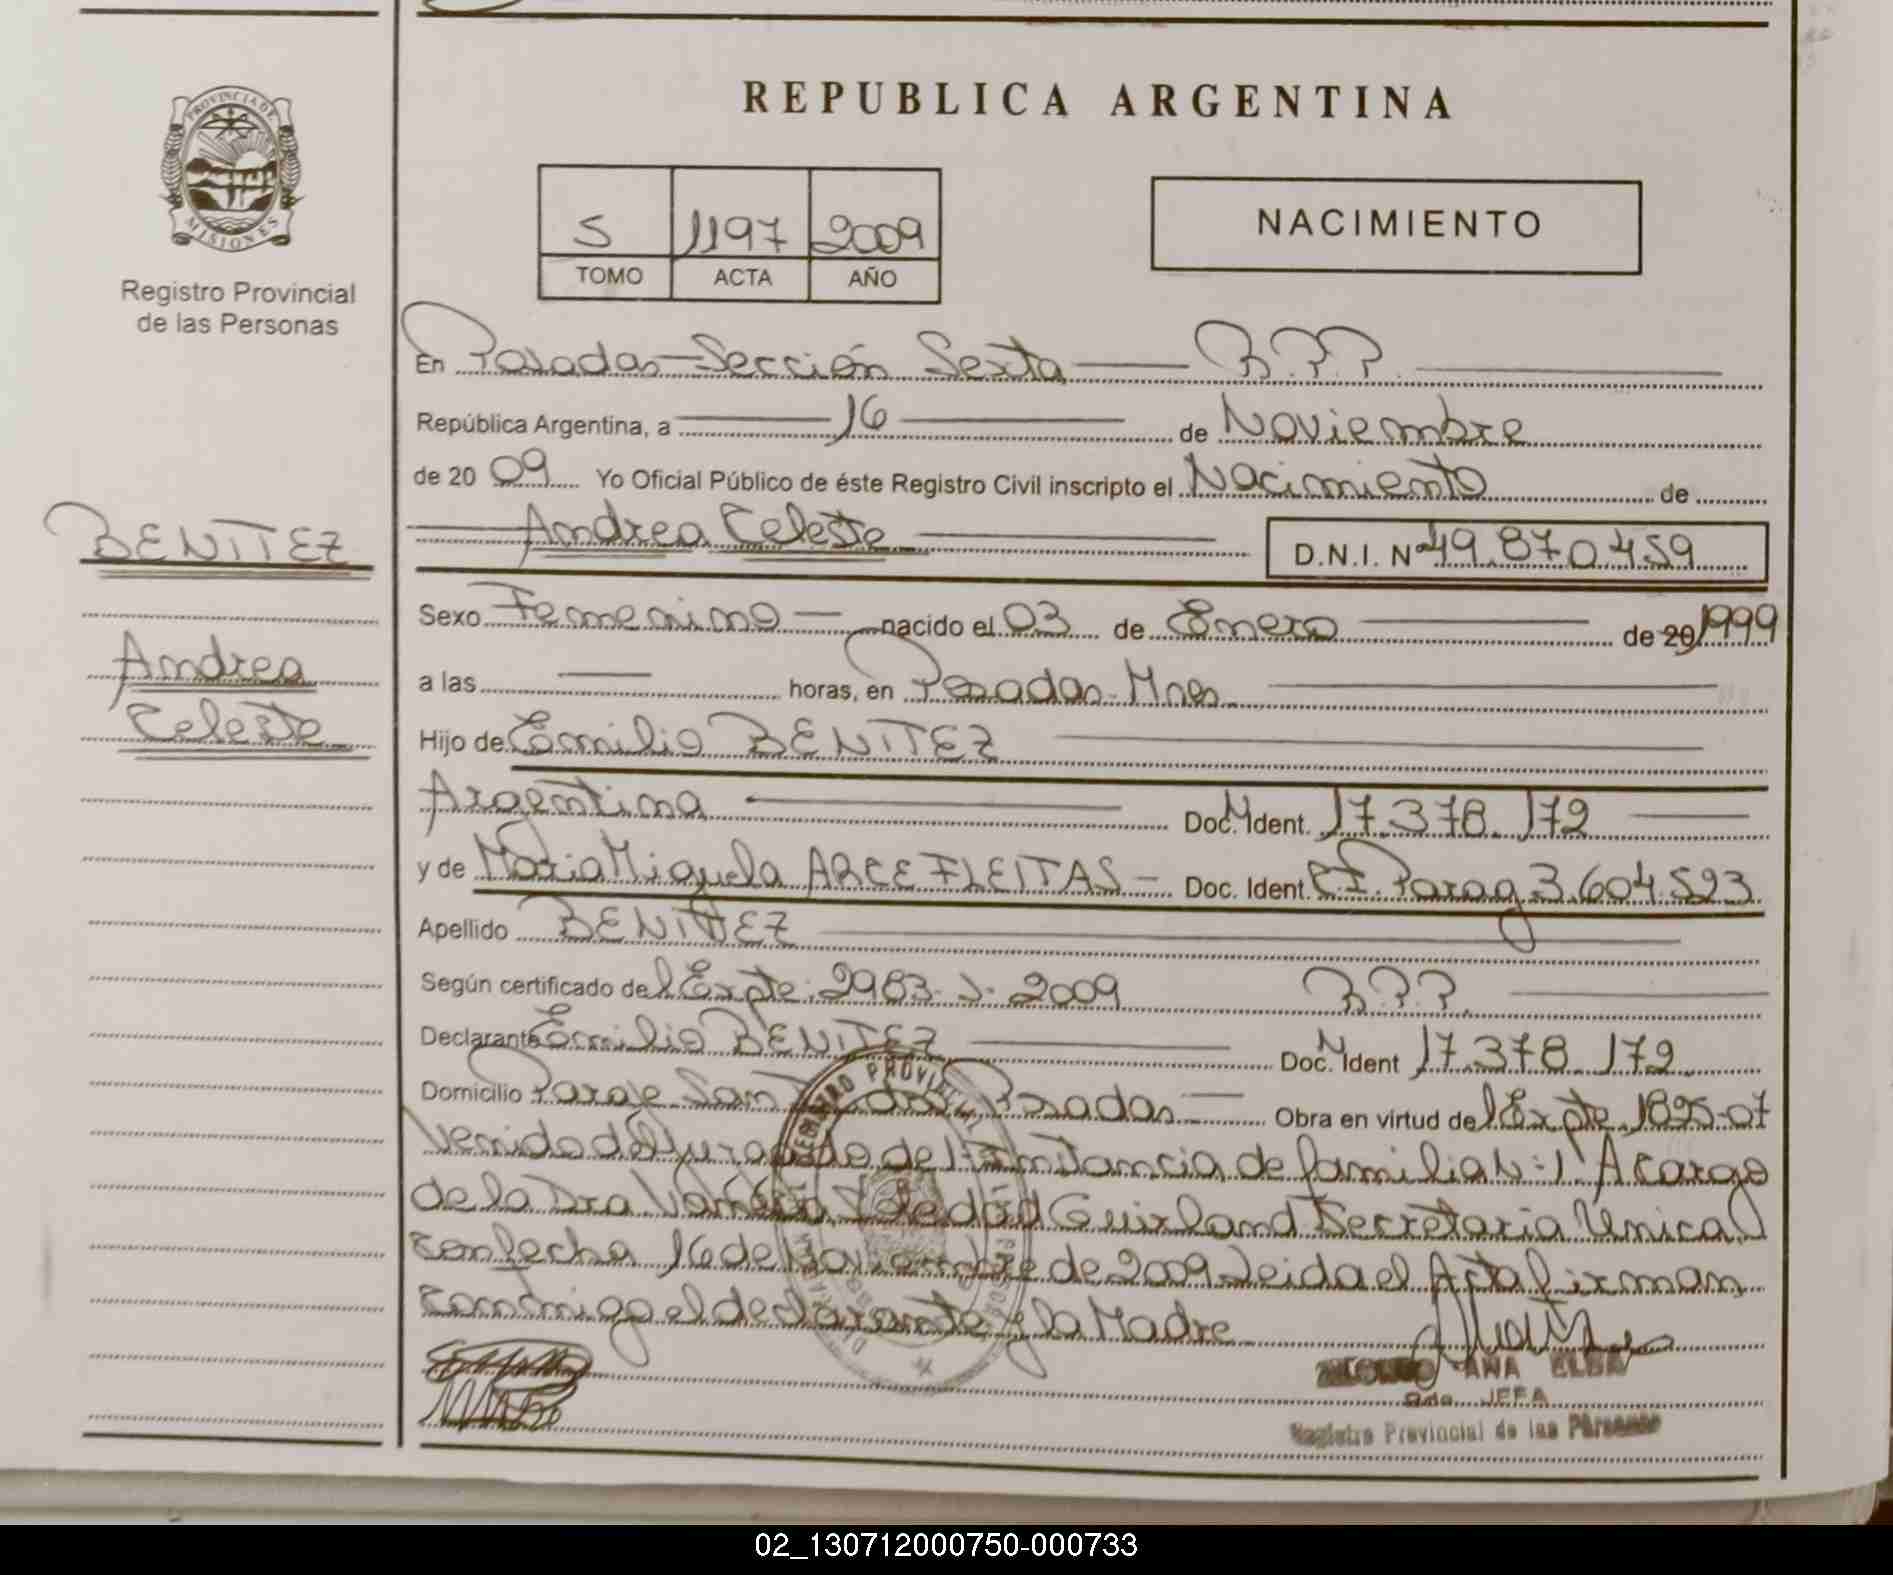 REPUBLICA ARGENTINA
PROVINCIA DE MISIONES
Registro Provincial
de las Personas
5 1197 2009
TOMO ACTA AÑO
NACIMIENTO
En Posadas-Sección Sexta
República Argentina, a 16 de Noviembre
de 20 09 Yo Oficial Público de éste Registro Civil inscripto el Nacimiento de
BENITEZ
Andrea
Celeste
Andrea Celeste D.N.I. Nº 49.870459
Sexo Femenino nacido el 03 de Enero de 20 1999
a las horas, en Posadas-Mnes
Hijo de Emilio BENITEZ
Argentina Doc. Ident. M 17.378.172
y de Maria Miguela ARCE FLEITAS Doc. Ident. C.I. Parag 3.604.523
Apellido BENITEZ
Según certificado del Expte. 2983- 2009
Declarante Emilio BENITEZ Doc. Ident M 17.378.172
Domicilio Paraje San Pedro Posadas Obra en virtud del Expte. 1895-07
Venido del Juzgado de 1º Instancia de familia Nº 1 A cargo
de la Dra Soledad Guirland Secretaria Unica
con fecha 16 de Noviembre de 2009 Leida el Acta firman
conmigo el declarante y la Madre
REGISTRO PROVINCIAL
ANA ELBA
JEFA
Registro Provincial de las Personas
02_130712000750-000733